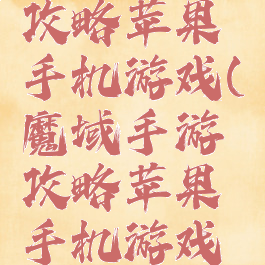 攻略苹果
手机游戏(
魔域手游
攻略苹果
手机游戏